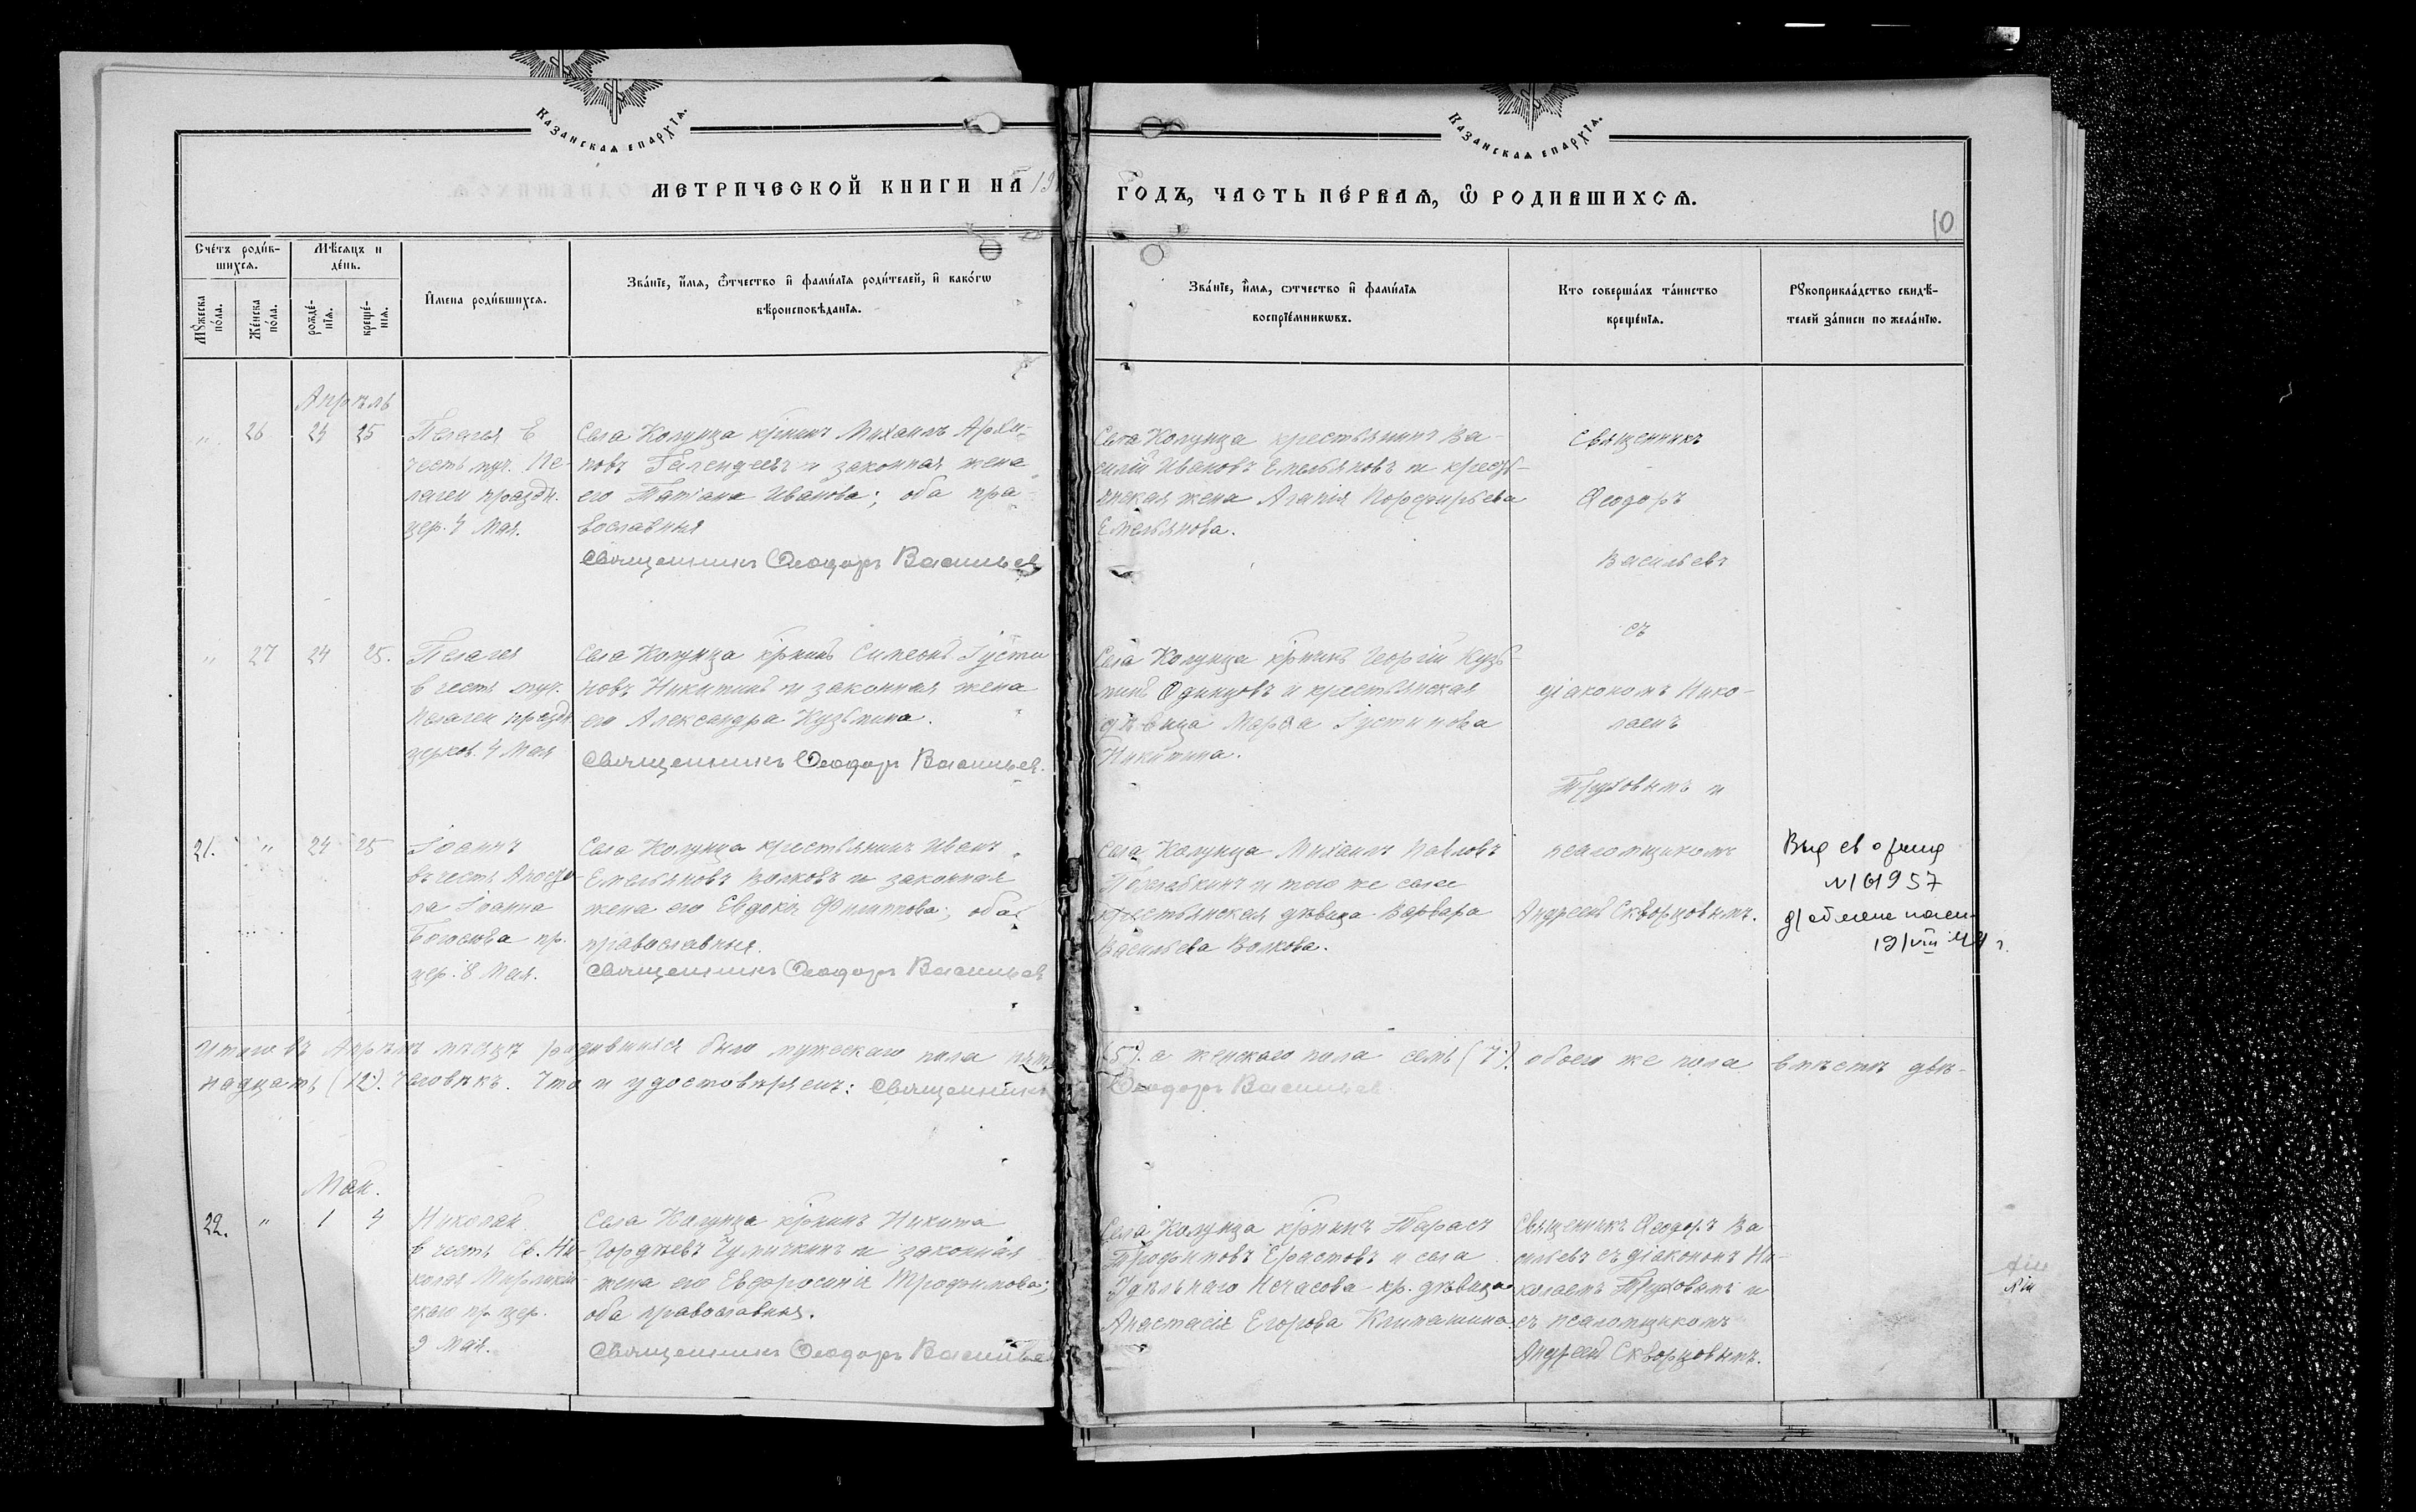 Казанская епархїя.
Казанская епархїя.
МЕТРИЧЕСКОЙ КНИГИ НА 19
ГОДЪ, ЧАСТЬ ПЕ́РВАЯ, Ѡ РОДИВШИХСЯ.
10
Сче́тъ роди́в-
шихся.
Мѣ́сяцъ и
де́нь.
Мꙋ́жеска
по́ла.
Же́нска
по́ла.
рожде́-
нїя.
креще́-
нїя.
И҆мена роди́вшихся.
Зва́нїе, и҆́мя, ѻ҆́тчество и҆ фами́лїя роди́телей, и҆ како́гѡ
вѣроисповѣ́данїя.
Зва́нїе, и҆́мя, ѻ҆́тчество и҆ фами́лїя
воспрїе́мникѡвъ.
Кто соверша́лъ та́инство
креще́нїя.
Рꙋкоприкла́дство свидѣ́-
телей за́писи по жела́нїю.
Апрѣль
" 26 23 25
Пелагея В
честь муч. Пе-
лагеи праздн.
цер. 4 Мая.
Села Колунца кр-нинъ Михаилъ Архи-
повъ и законная жена
его Татіана Иванова; оба пра-
вославныя
Священникъ Ѳеодоръ Васильев
Села Колунца крестьянинъ Ва-
силій Ивановъ Емельяновъ и кресть-
янская жена Агапія Порфирьева
Емельянова.
Священникъ
Ѳеодоръ
Васильевъ
съ
" 27 24 25.
Пелагея
в честь муч.
Пелагеи праздн
церков. 4 Мая
Села Колунца кр-нинъ Симеонъ Густи
новъ Никитинъ и законная жена
его Александра Кузьмина.
Священникъ Ѳеодоръ Васильев.
Села Колунца кр-нинъ Георгій Кузь-
минъ Одинцовъ и крестьянская
дѣвица Марѳа Густинова
Никитина.
діакономъ Нико-
лаемъ
Труховымъ и
21. " 24 25
Іоаннъ
въ честь Апосто-
ла Іоанна
Богослова пр.
цер. 8 Мая.
Села Колунца крестьянинъ Иванъ
Емельяновъ Волковъ и законная
жена его Евдокія Филиппова; оба
православныя.
Священникъ Ѳеодоръ Васильев
Села Колунца Михаилъ Павловъ
и того же села
крестьянская дѣвица Варвара
Васильева Волкова.
псаломщикомъ
Андреемъ Скворцовымъ.
Выд св о рожд
№
19/VIII
Итого въ Апрѣлѣ мѣсяцѣ родившихся было мужескаго пола пять (5). а женскаго пола семь (7). обоего же пола вмѣстѣ двѣ-
надцать (12). человѣкъ. Что и удостовѣряемъ: Священникъ Ѳеодоръ Васильев
Май.
22. " 1 4
Николай
в честь Св. Ни-
колая Мирликій
скаго пр. цер.
9 Мая.
Села Колунца кр-нинъ Никита
Гордѣевъ и законная
жена его Евфросинія Трофимова;
оба православныя.
Священникъ Ѳеодоръ Васильев
Села Колунца кр-нинъ Тарасъ
Трофимовъ Ерастовъ и села
Удѣльнаго Нечасова кр. дѣвица
Анастасія Егорова
Священникъ Ѳеодоръ Ва-
сильевъ съ діакономъ Ни-
колаемъ Труховымъ и
съ псаломщикомъ
Андреемъ Скворцовымъ.